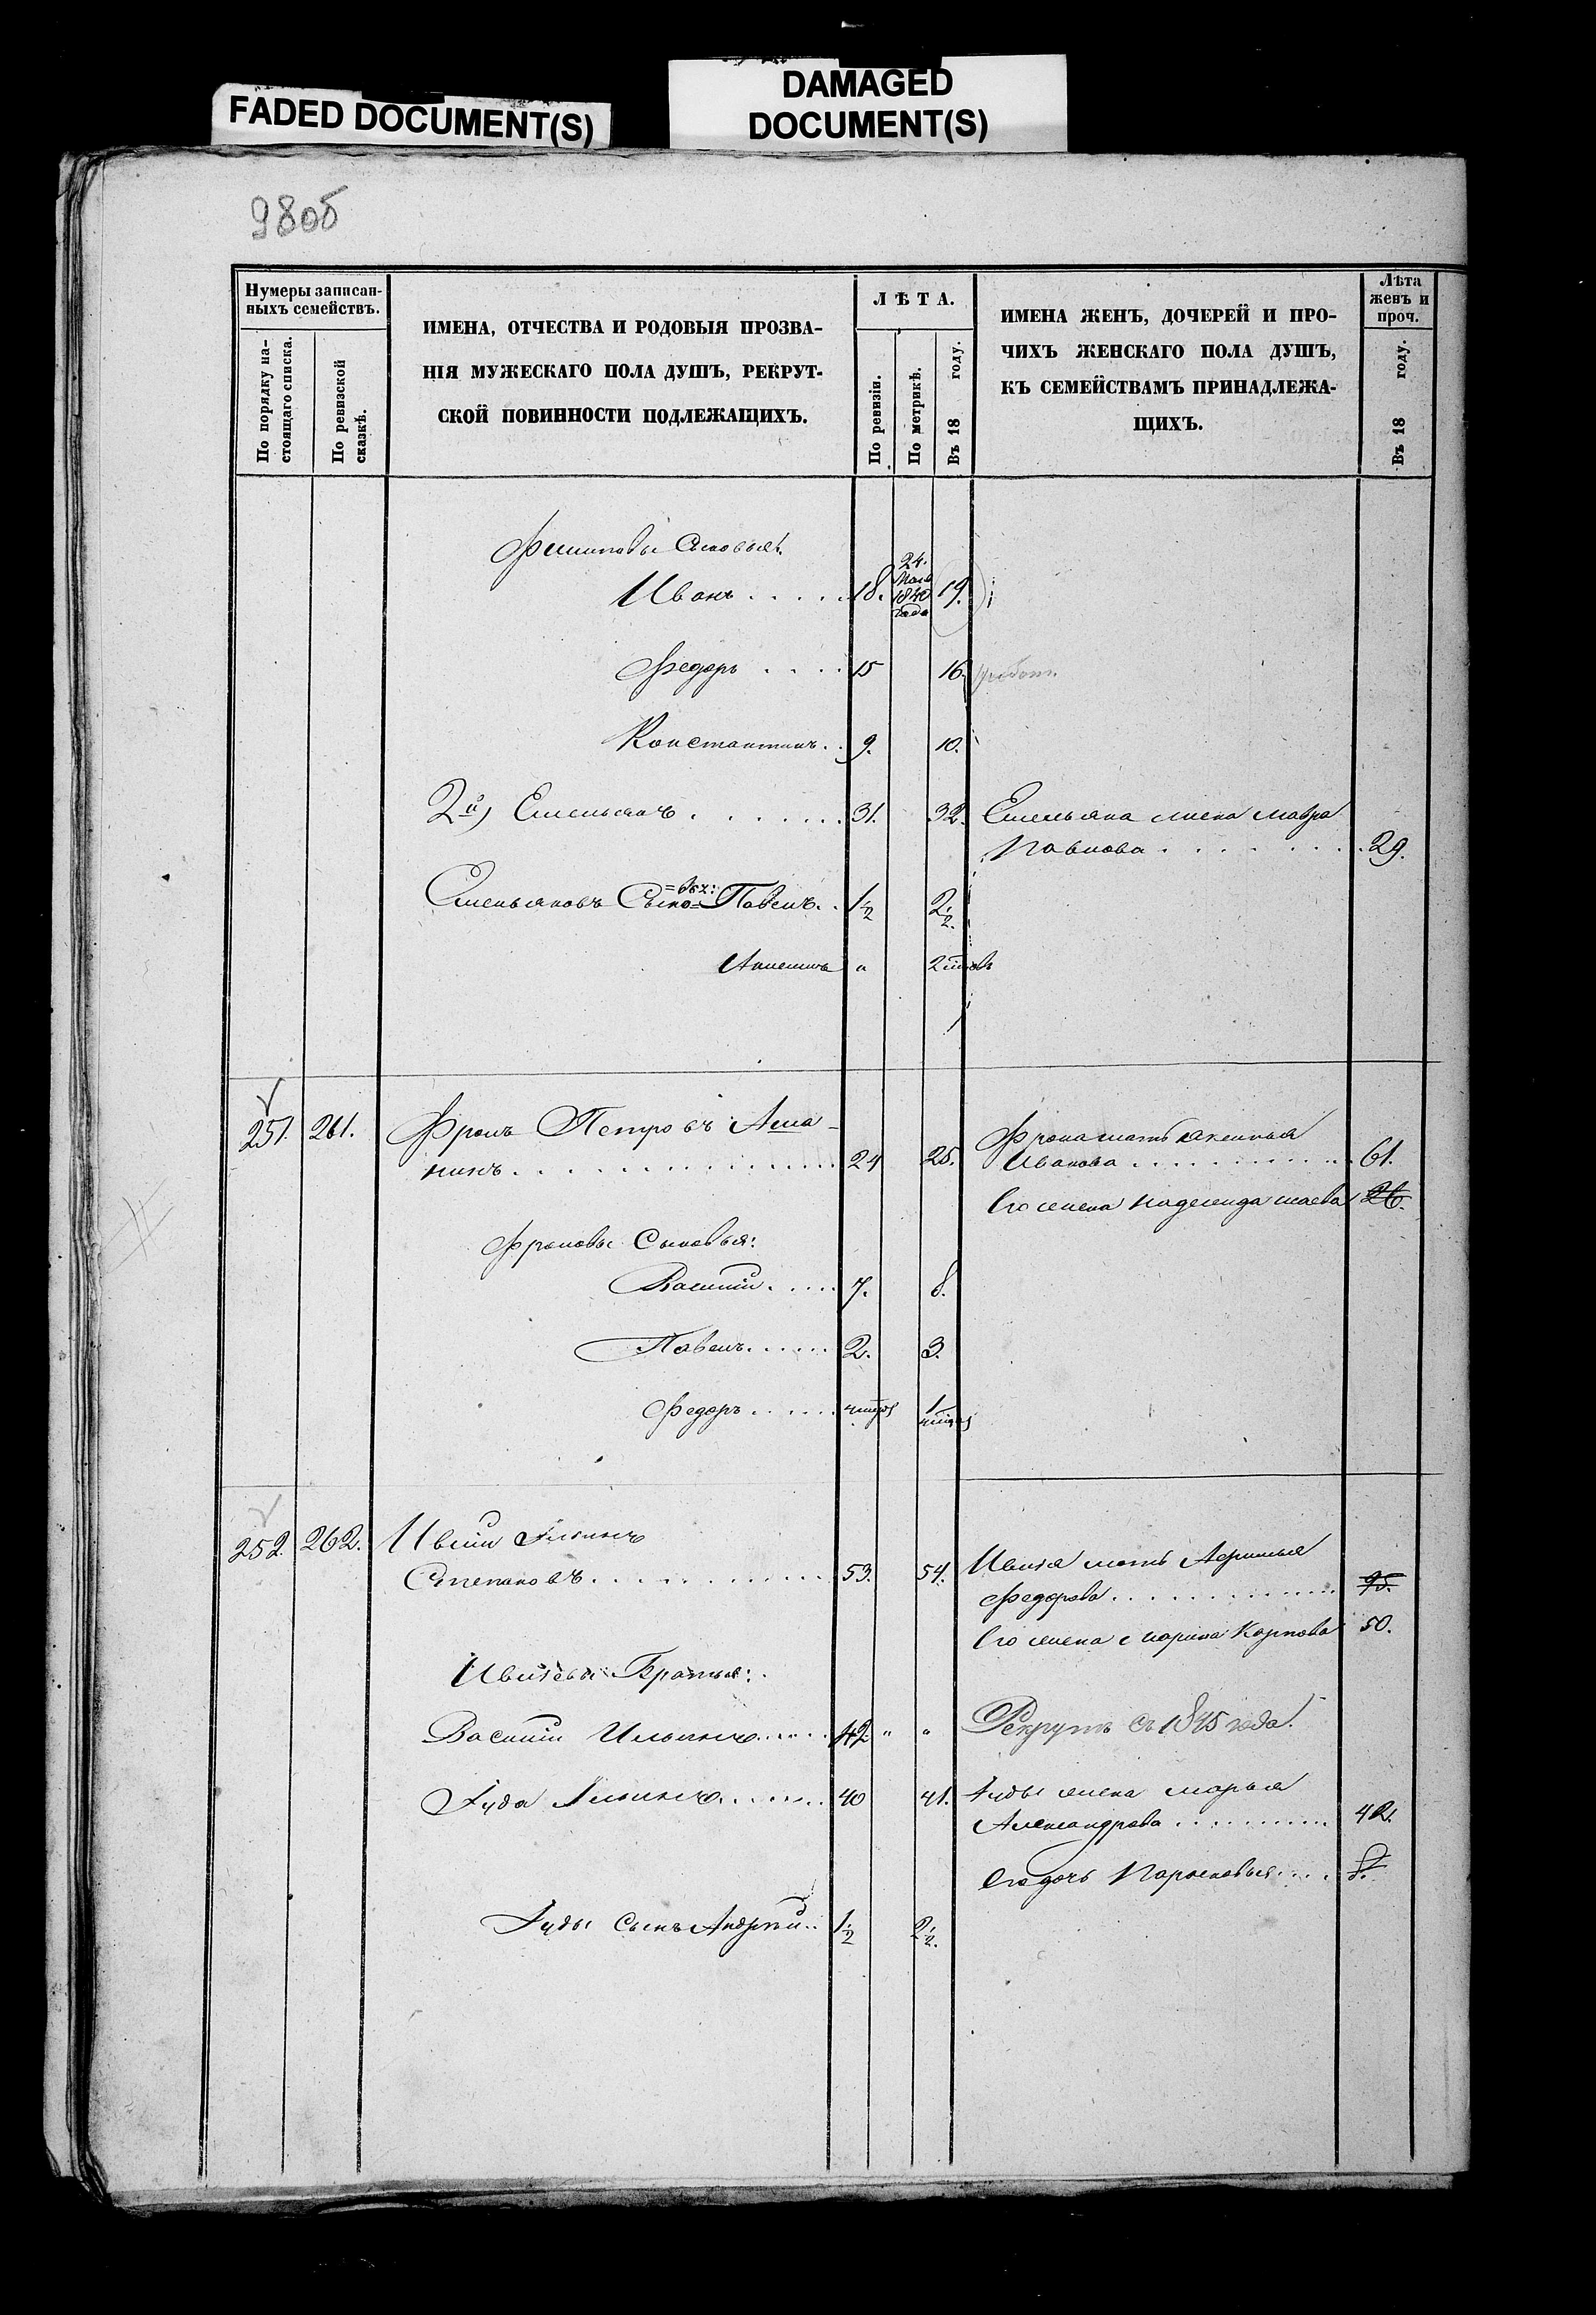 FADED DOCUMENT(S)
DAMAGED
DOCUMENT(S)
98об
Нумеры записан-
ныхъ семействъ.
По порядку на-
стоящаго списка.
По ревизской
сказкѣ.
ИМЕНА, ОТЧЕСТВА И РОДОВЫЯ ПРОЗВА-
НІЯ МУЖЕСКАГО ПОЛА ДУШЪ, РЕКРУТ-
СКОЙ ПОВИННОСТИ ПОДЛЕЖАЩИХЪ.
ЛѢТА.
По ревизіи.
По метрикѣ.
Въ 18 году.
ИМЕНА ЖЕНЪ, ДОЧЕРЕЙ И ПРО-
ЧИХЪ ЖЕНСКАГО ПОЛА ДУШЪ,
КЪ СЕМЕЙСТВАМЪ ПРИНАДЛЕЖА-
ЩИХЪ.
Лѣта
женъ и
проч.
Въ 18 году.
Филиповы Сыновья:
Иванъ . . . . . 18. 24. Мая 1840 года 19.
Федоръ . . . . 15 16.
Константинъ . . 9. 10.
2й) Емельянъ . . . . . . . 31. 32. Емельяна жена Мавра
Павлова . . . . . . . 29.
Емельяновъ Сынъ Павелъ . . 1½ 2½.
" 2
251. 261. Фролъ Петровъ Аша-
нинъ . . . . . . . . . . 24 25. Фрола мать Аксинья
Ивановa . . . . . . . . . 61.
Его жена Надежда 26.
Фроловы Сыновья:
Василій . . . . . 7. 8.
Павелъ . . . . . 2. 3.
Федоръ . . . . . 1
252. 262. Ивлій Ильинъ
Степановъ . . . . . . . . . 53. 54. Ивлія мать Афимья
Федорова . . . . . . . . . 95.
Его жена Марина Карпова 50.
Ивліевы Братья:
Василій Ильинъ . . . . . 42 " " Рекрутъ съ 1845 года.
Іуда Ильинъ . . . . . . 40 41. Іуды жена Марья
Александрова . . . . . . . 42.
Его дочь Парасковья . . . . 8.
Іуды Сынъ Андрей . . 1½ 2½.